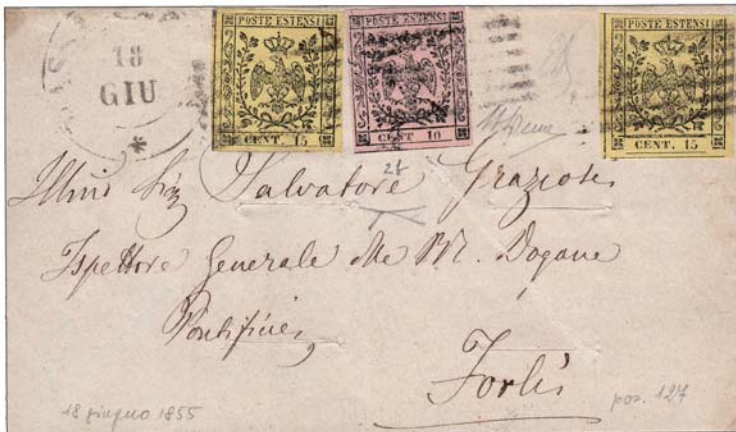 POSTE ESTENSI
CENT. 15
POSTE ESTENSI
CENT. 10
POSTE ESTENSI
CENT. 15
18
GIU
Salvatore
Ispettore Generale Dogane
Pontificie
Forlì
18 giugno 1855
pos. 127